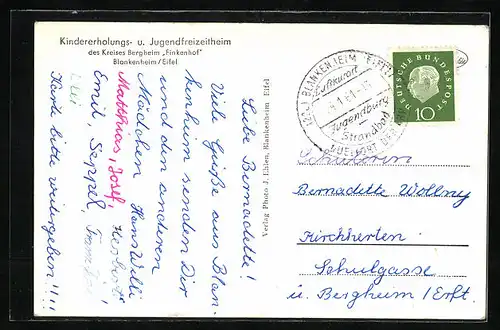 Kindererholungs- u. Jugendfreizeitheim
des Kreises Bergheim „Finkenhof"
Blankenheim/Eifel
Liebe Bernadette!
Viele Grüße aus Blan-
kenheim senden Dir
und den anderen
Mädchen Hans Willi
Matthias, Josef, Herbert
Emil Seppl, Franz Josef
Karte bitte weitergeben!!!!
Verlag Photo J. Ehlen, Blankenheim Eifel
(22c) BLANKENHEIM (EIFEL)
Luftkurort
Jugendburg
Strandbad
DEUTSCHE BUNDESPOST
10
Schülerin
Bernadette Wollny
Kirchherten
Schulgasse
ü. Bergheim/Erft.